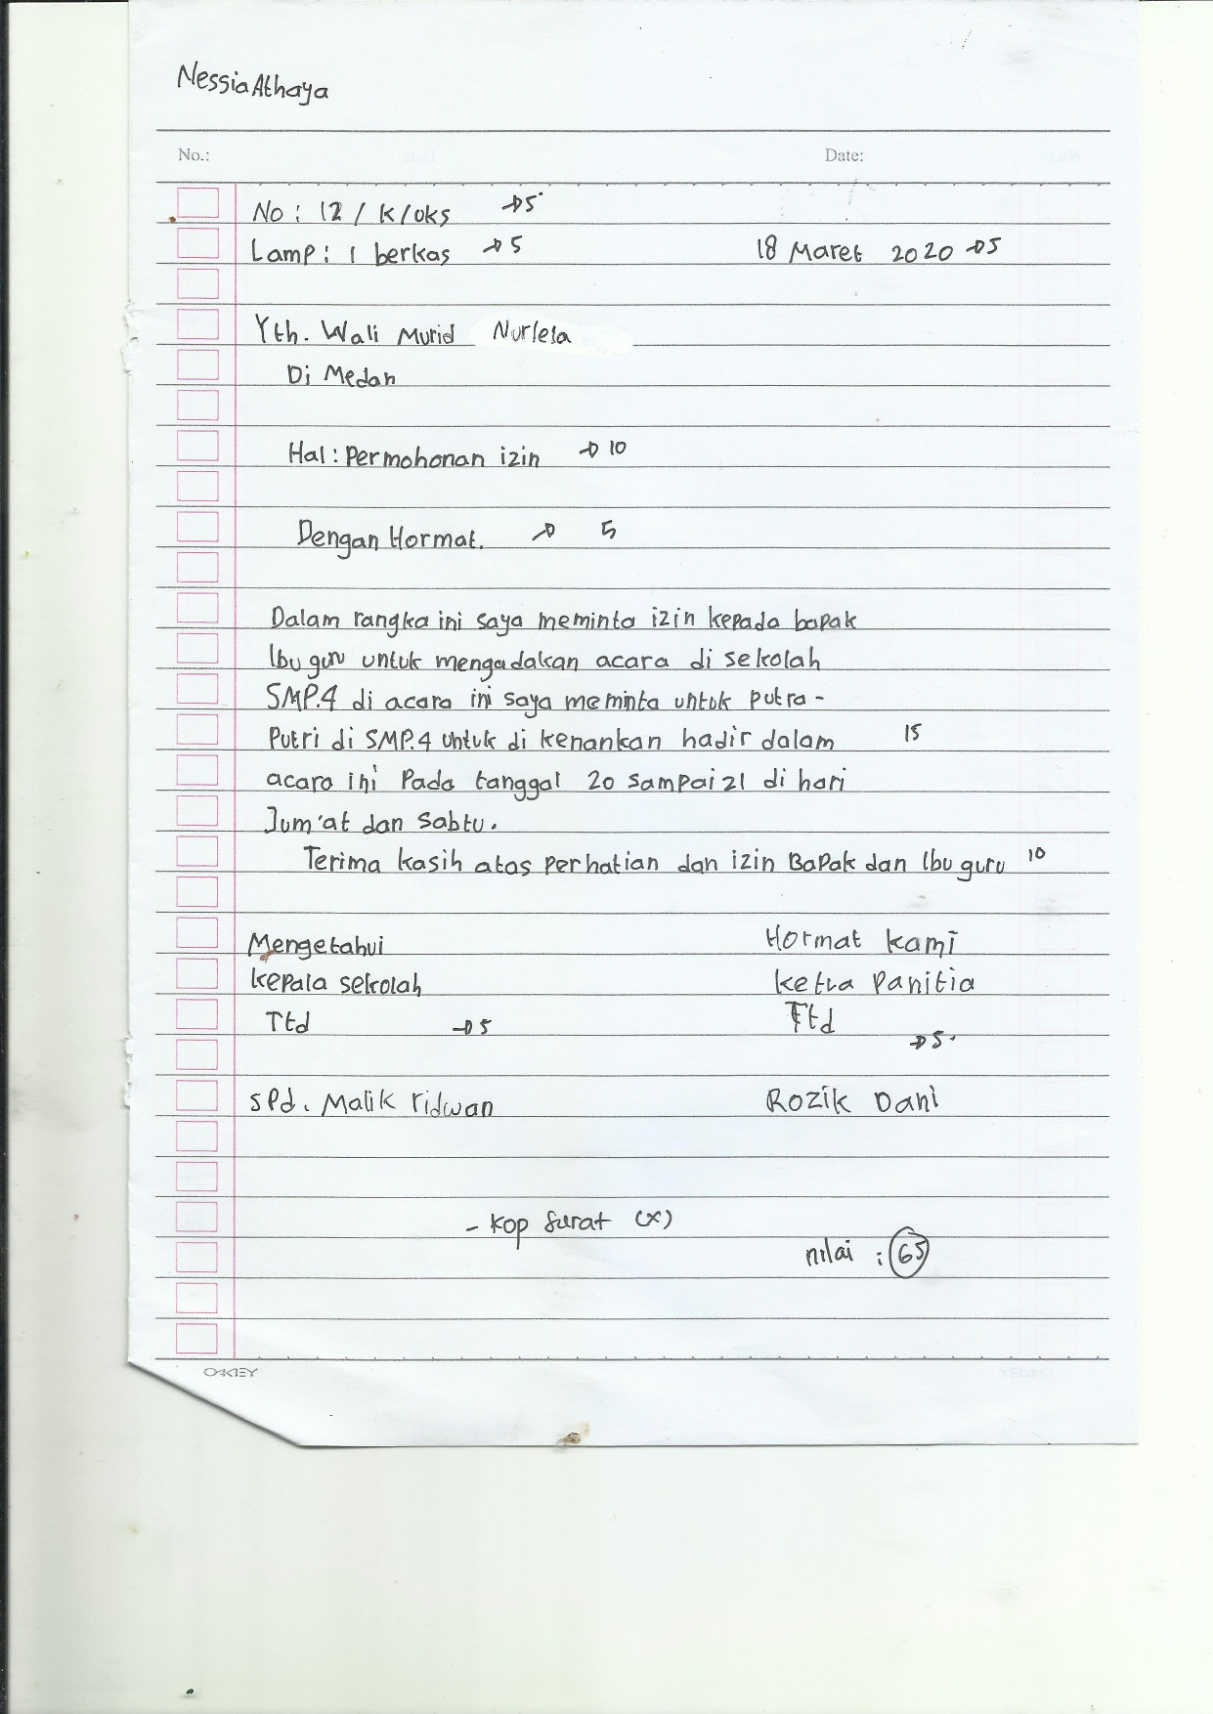 Nessia Athaya
No.: Date:
No : 12 / K / oks → 5
Lamp : 1 berkas → 5 18 Maret 2020 → 5
Yth. Wali Murid Nurlela
Di Medan
Hal : Permohonan izin → 10
Dengan Hormat. → 5
Dalam rangka ini saya meminta izin kepada bapak
Ibu guru untuk mengadakan acara di sekolah
SMP.4 di acara ini saya meminta untuk putra -
Putri di SMP.4 untuk di kenankan hadir dalam 15
acara ini Pada tanggal 20 sampai 21 di hari
Jum'at dan Sabtu.
Terima kasih atas perhatian dan izin Bapak dan Ibu guru 10
Mengetahui Hormat kami
kepala sekolah ketua Panitia
Ttd → 5 Ttd → 5
SPd. Malik ridwan Rozik Dani
- Kop Surat (x)
nilai : 65
OAKLEY